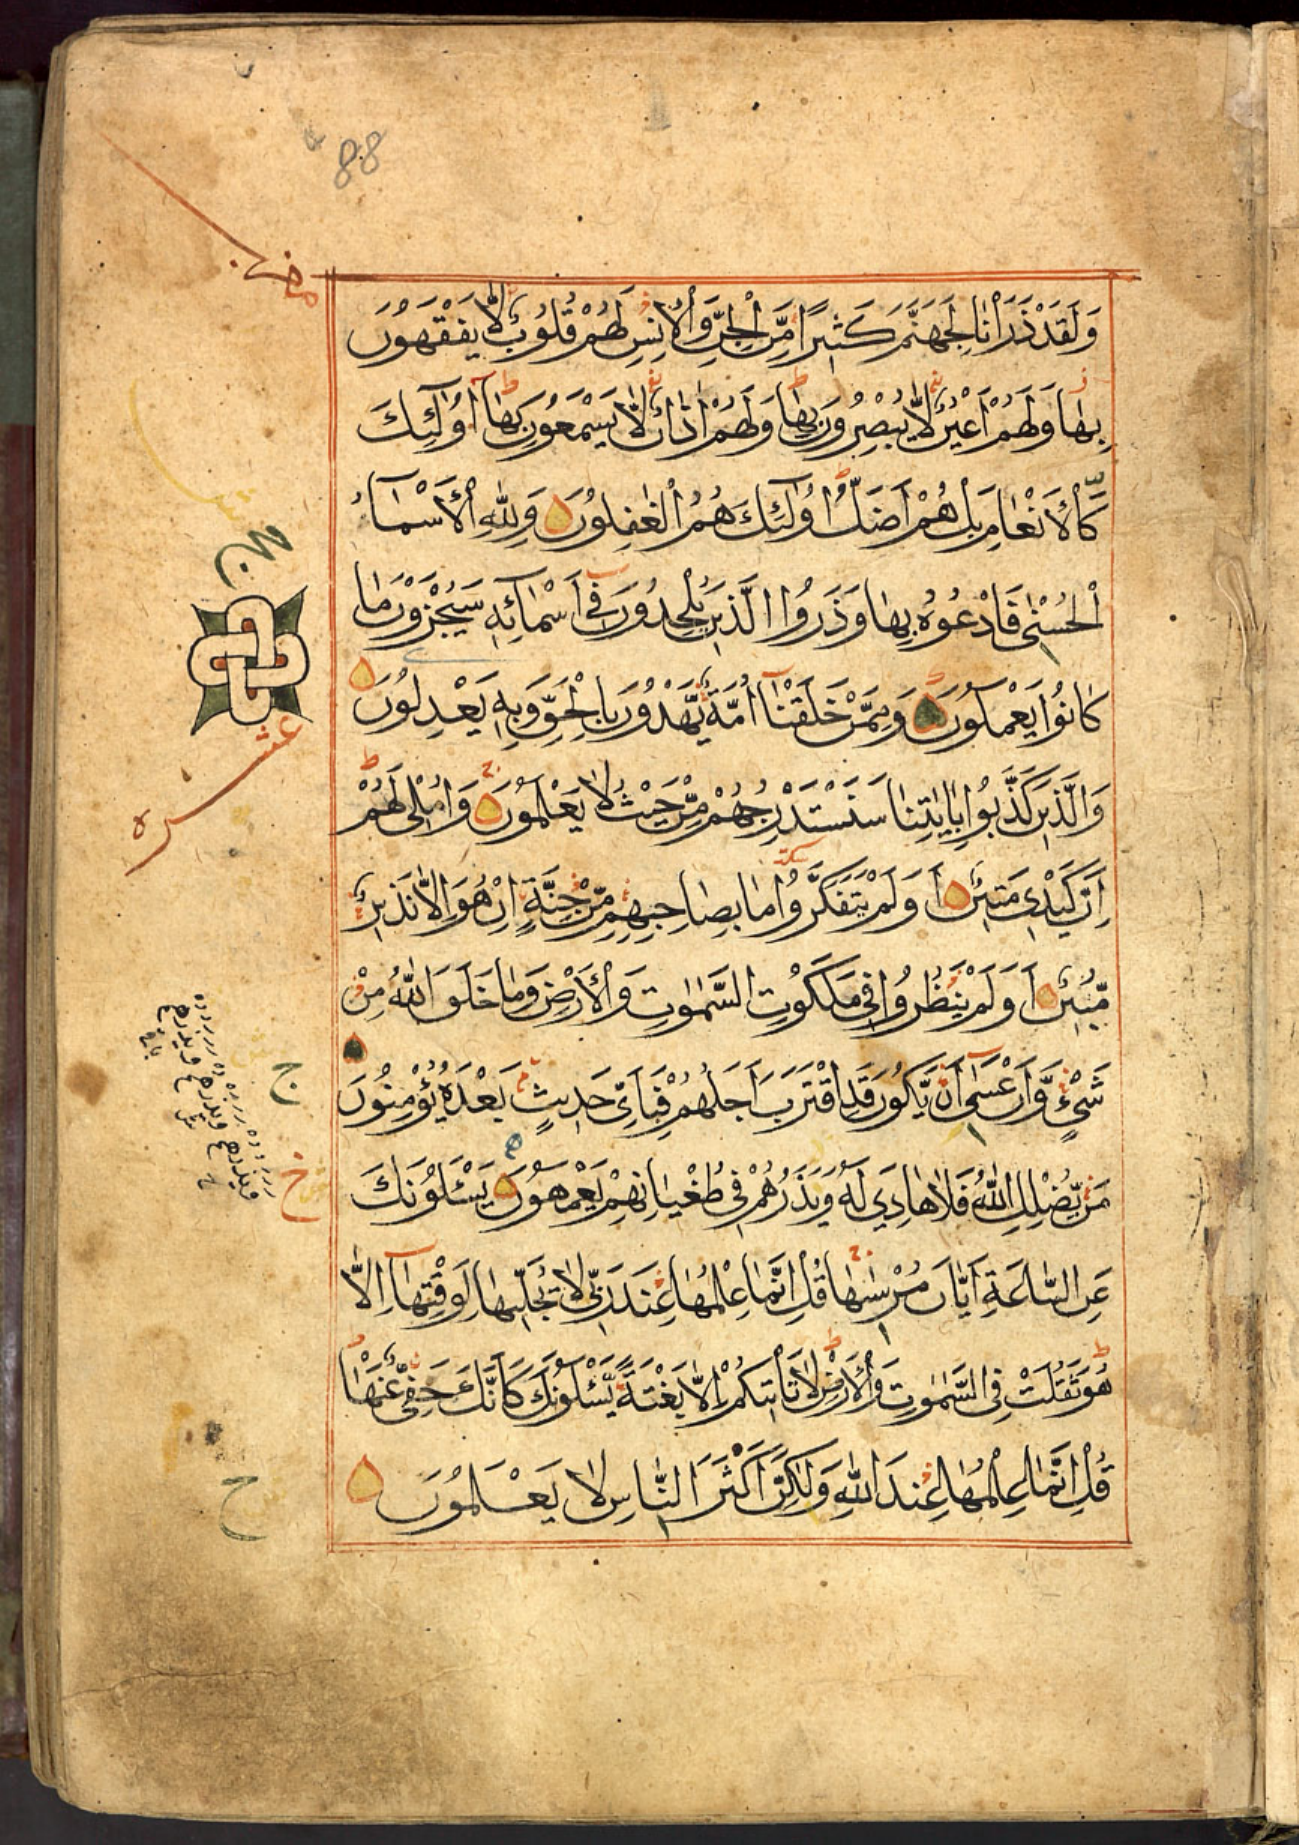 88
وَلَقَدْ ذَرَاْنَا لِجَهَنَّمَ كَثِيرًا مِّنَ الْجِنِّ وَالْاِنْسِ لَهُمْ قُلُوبٌ لَّا يَفْقَهُونَ
بِهَا وَلَهُمْ اَعْيُنٌ لَّا يُبْصِرُونَ بِهَا وَلَهُمْ اٰذَانٌ لَّا يَسْمَعُونَ بِهَا اُولٰٓئِكَ
كَالْاَنْعَامِ بَلْ هُمْ اَضَلُّ اُولٰٓئِكَ هُمُ الْغٰفِلُونَ وَلِلّٰهِ الْاَسْمَآءُ
الْحُسْنٰى فَادْعُوهُ بِهَا وَذَرُوا الَّذِينَ يُلْحِدُونَ فِىٓ اَسْمَآئِهِ سَيُجْزَوْنَ مَا
كَانُوا يَعْمَلُونَ وَمِمَّنْ خَلَقْنَآ اُمَّةٌ يَّهْدُونَ بِالْحَقِّ وَبِهِ يَعْدِلُونَ
وَالَّذِينَ كَذَّبُوا بِاٰيٰتِنَا سَنَسْتَدْرِجُهُمْ مِّنْ حَيْثُ لَا يَعْلَمُونَ وَاُمْلِى لَهُمْ
اِنَّ كَيْدِى مَتِينٌ اَوَلَمْ يَتَفَكَّرُوا مَا بِصَاحِبِهِمْ مِّنْ جِنَّةٍ اِنْ هُوَ اِلَّا نَذِيرٌ
مُّبِينٌ اَوَلَمْ يَنْظُرُوا فِى مَلَكُوتِ السَّمٰوٰتِ وَالْاَرْضِ وَمَا خَلَقَ اللّٰهُ مِنْ
شَىْءٍ وَّاَنْ عَسٰىٓ اَنْ يَّكُونَ قَدِ اقْتَرَبَ اَجَلُهُمْ فَبِاَىِّ حَدِيثٍ بَعْدَهُ يُؤْمِنُونَ
مَنْ يُّضْلِلِ اللّٰهُ فَلَا هَادِىَ لَهُ وَيَذَرُهُمْ فِى طُغْيَانِهِمْ يَعْمَهُونَ يَسْئَلُونَكَ
عَنِ السَّاعَةِ اَيَّانَ مُرْسٰىهَا قُلْ اِنَّمَا عِلْمُهَا عِنْدَ رَبِّى لَا يُجَلِّيهَا لِوَقْتِهَآ اِلَّا
هُوَ ثَقُلَتْ فِى السَّمٰوٰتِ وَالْاَرْضِ لَا تَاْتِيكُمْ اِلَّا بَغْتَةً يَّسْئَلُونَكَ كَاَنَّكَ حَفِىٌّ عَنْهَا
قُلْ اِنَّمَا عِلْمُهَا عِنْدَ اللّٰهِ وَلٰكِنَّ اَكْثَرَ النَّاسِ لَا يَعْلَمُونَ
عشره
ج
خ
ح